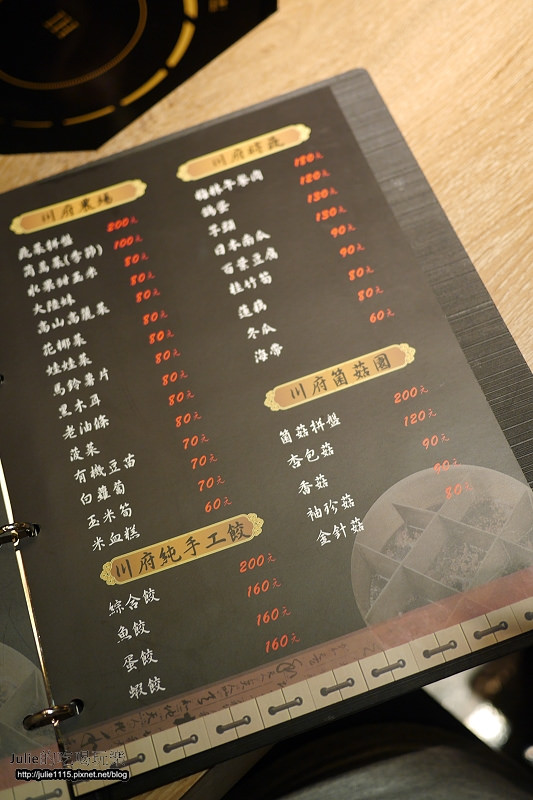 川府農場
蔬菜拼盤 200元
茼萵菜(季節) 100元
水果甜玉米 80元
大陸妹 80元
高山高麗菜 80元
花椰菜 80元
娃娃菜 80元
馬鈴薯片 80元
黑木耳 80元
老油條 80元
菠菜 80元
有機豆苗 70元
白蘿蔔 70元
玉米筍 70元
米血糕 60元
川府純手工餃
綜合餃 200元
魚餃 160元
蛋餃 160元
蝦餃 160元
川府時蔬
180元
鴿蛋 120元
芋頭 130元
日本南瓜 130元
百葉豆腐 90元
桂竹筍 90元
蓮藕 80元
冬瓜 80元
海帶 60元
川府菌菇園
菌菇拼盤 200元
杏包菇 120元
香菇 90元
袖珍菇 90元
金針菇 80元
Julie
http://julie1115.pixnet.net/blog